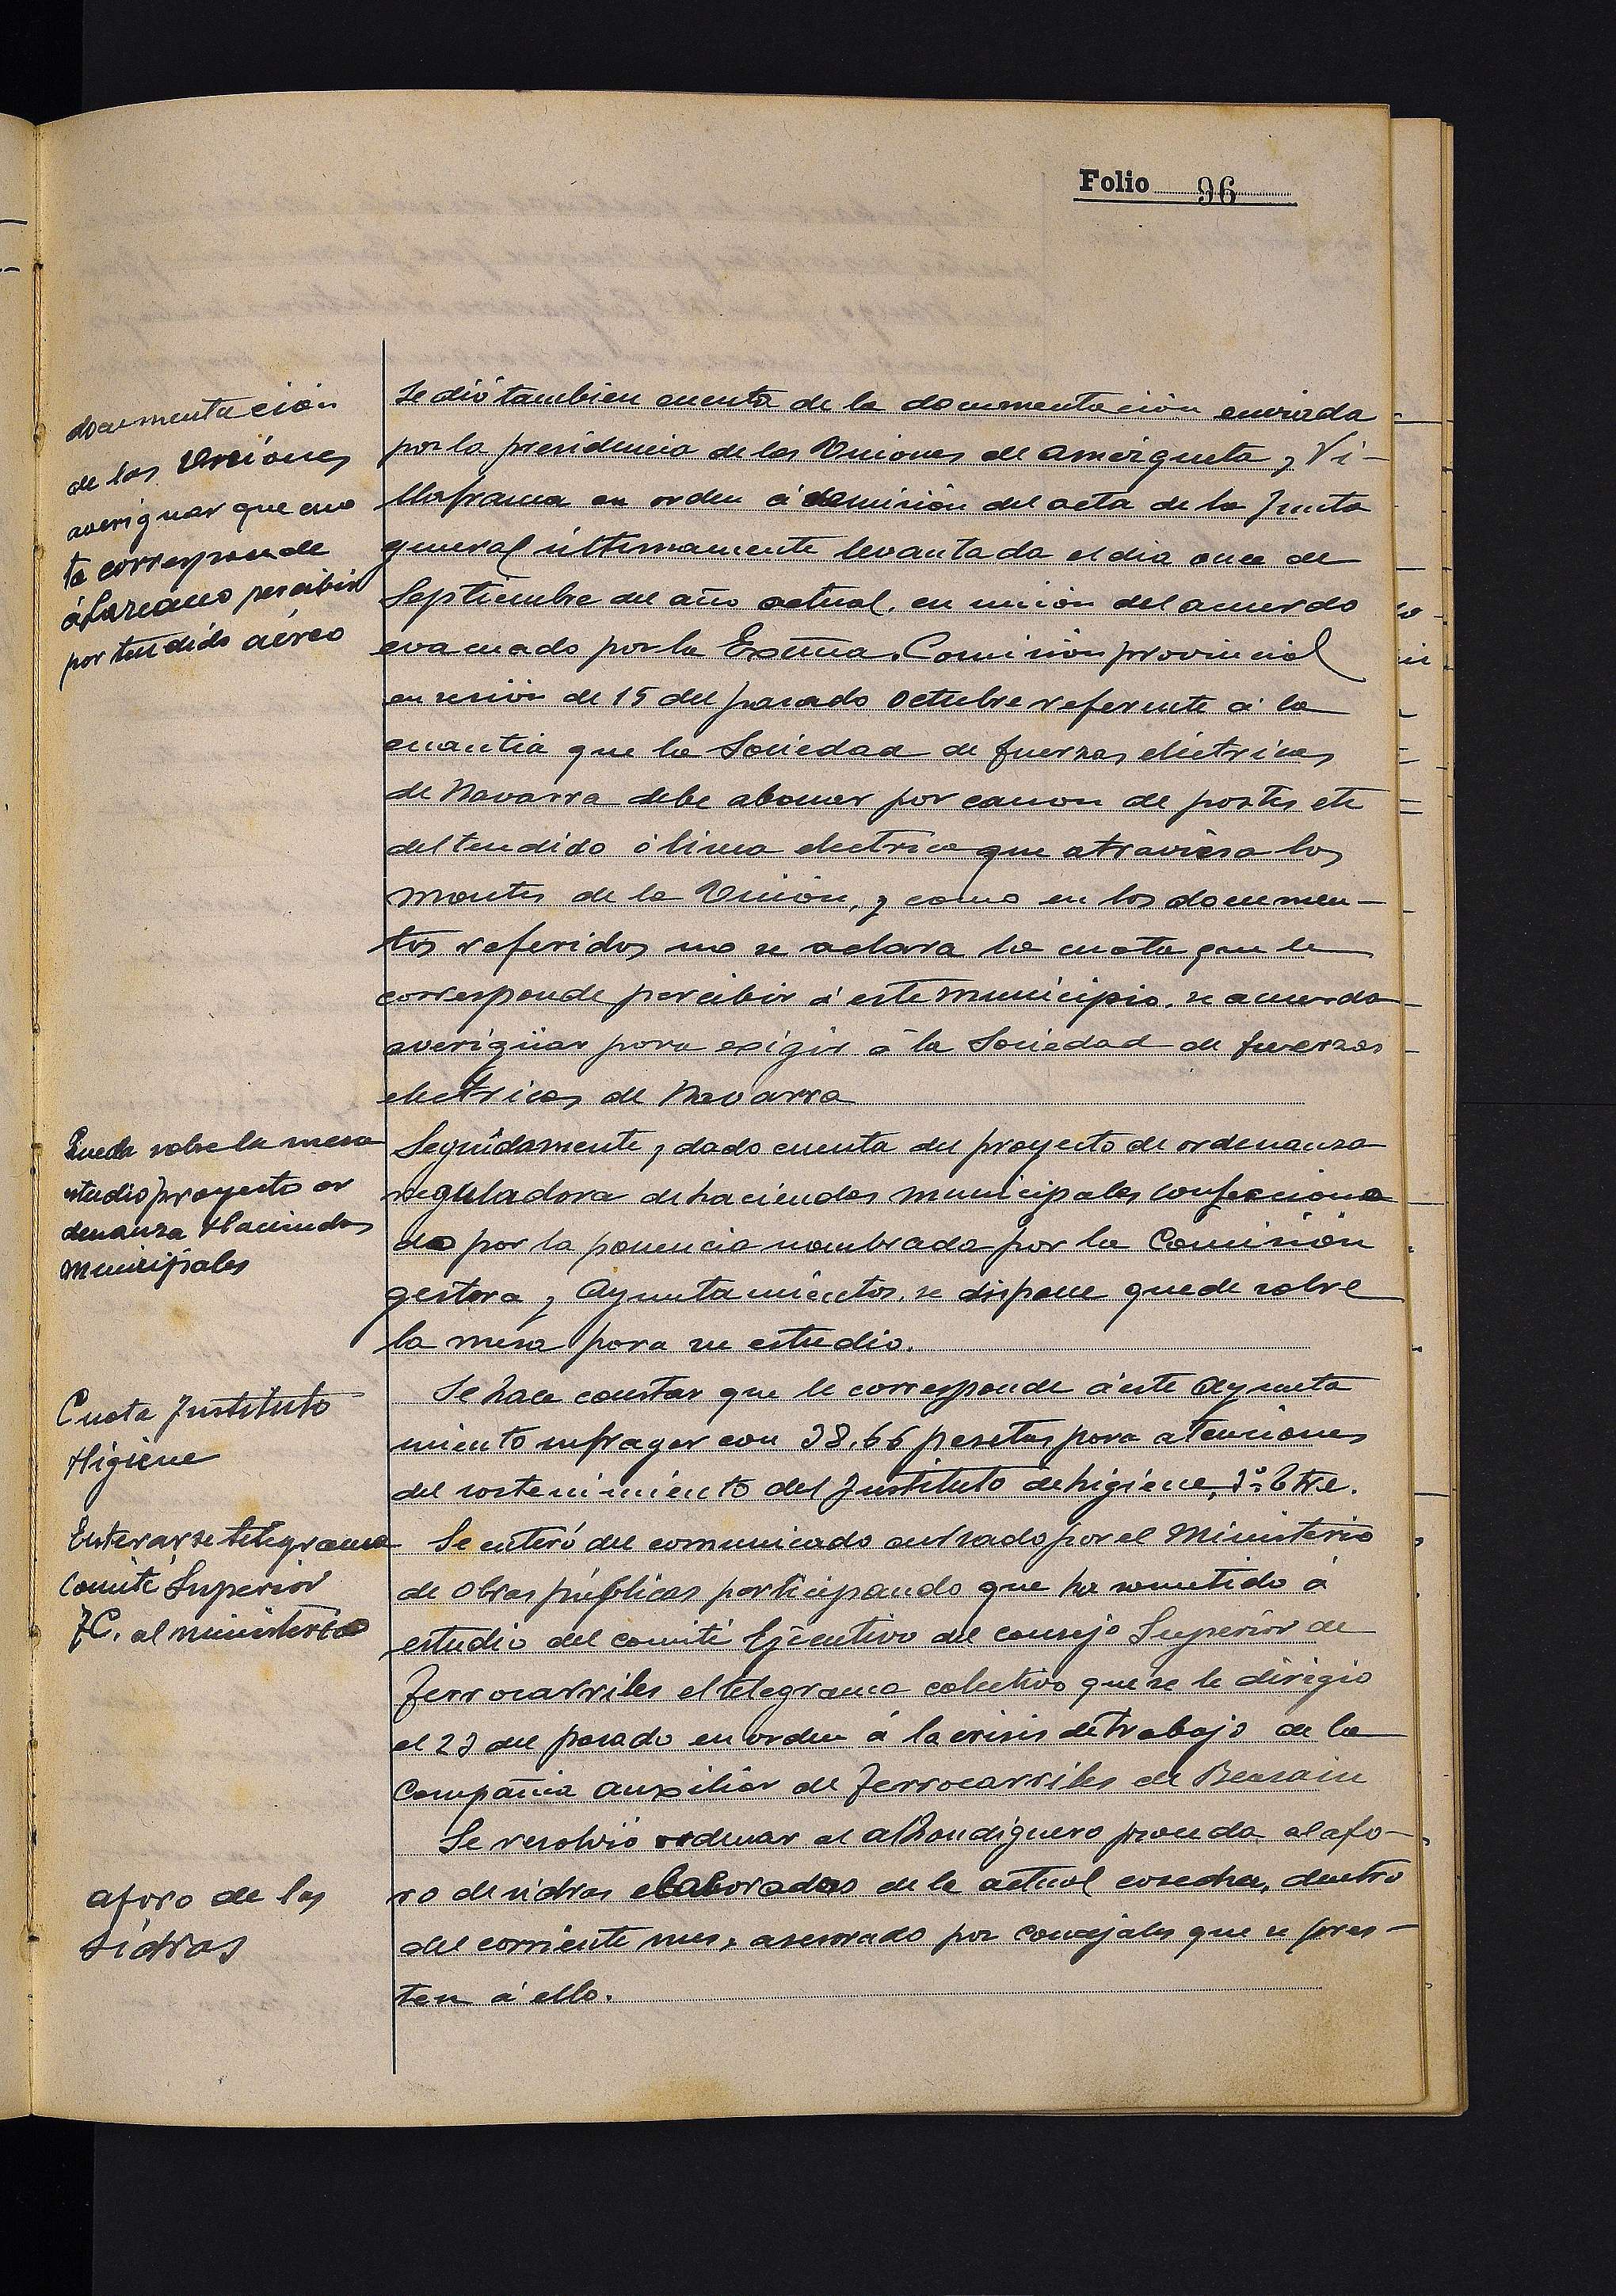 Folio 96
documentación
de las Uniónes
averiguar que cuo
ta corresponde
á Lazcano percibir
por tendido aéreo
Se dió tambien cuenta de la documentación enviada
por la presidencia de las Uniones de Amézqueta y Vi-
llafranca en orden á demisión del acta de la Junta
general últimamente levantada el dia once de
Septiembre del año actual, en unión del acuerdo
evacuado por la Exctma. Comisión provincial
en sesión de 15 del pasado Octubre referente á la
cuantia que la Sociedad de fuerzas eléctricas
de Navarra debe abonar por canon de postes etc
del tendido ó linea electrica que atraviesa los
montes de la Unión, y como en los documen-
tos referidos no se aclara la cuota que le
corresponde percibir á este municipio, se acuerda
averigüar para exigir á la Sociedad de fuerzas
electricas de Navarra
Queda sobre la mesa
estudio proyecto or
denanza Haciendas
municipales
Seguidamente y dado cuenta del proyecto de ordenanza
reguladora de haciendas municipales confecciona
do por la ponencia nombrada por la Comisión
gestora y Ayuntamientos, se dispone quede sobre
la mesa para su estudio.
Cuota Instituto
Higiene
Se hace constar que le corresponde á este Ayunta
miento sufragar con 38,66 pesetas para atenciones
del sostenimiento del Instituto de higiene, 3º tre.
Enterarse telegrama
Comité Superior
F.C. al ministerio
Se enteró del comunicado cursado por el Ministerio
de Obras públicas participando que ha sometido á
estudio del comité Ejecutivo del consejo Superior de
Ferrocarriles el telegrama colectivo que se le dirigio
el 23 del pasado en orden á la crisis de trabajo de la
Compañia Auxiliar de Ferrocarriles de Beasain
aforo de las
sidras
Se resolvió ordenar al alhondiguero proceda al afo-
ro de sidras elaboradas de la actual cosecha, dentro
del corriente mes, asesorado por concejales que se pres-
ten á ello.